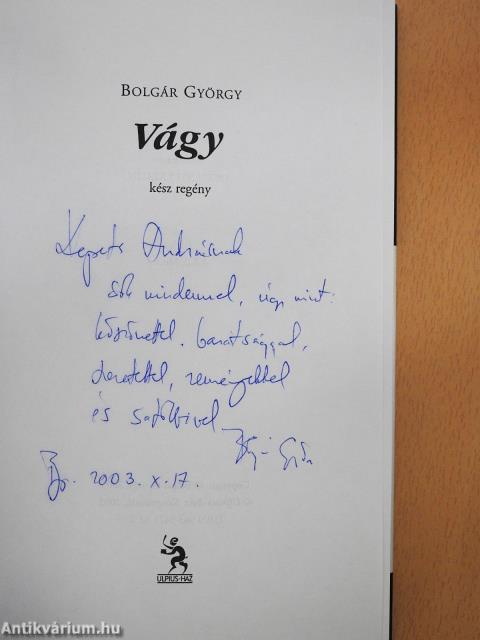 BOLGÁR GYÖRGY
Vágy
kész regény
Kepes Andrásnak
sok mindennel, úgy mint:
köszönettel, barátsággal,
szeretettel, reményekkel
és
Bp. 2003. X. 17.
ULPIUS-HÁZ
Antikvárium.hu